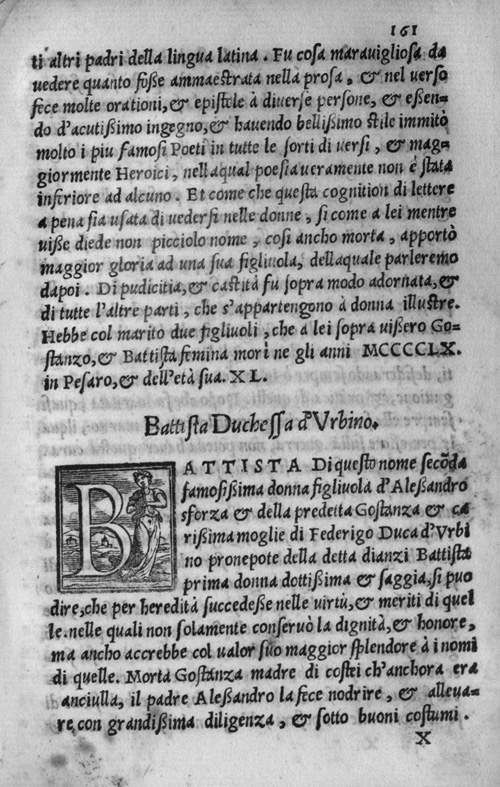 161
ti altri padri della lingua latina. Fu cosa maravigliosa da
vedere quanto foße ammaestrata nella prosa, & nel verso
fece molte orationi, & epistole à diverse persone, & eßen-
do d'acutißimo ingegno, & havendo bellißimo stile immitò
molto i piu famosi Poeti in tutte le sorti di versi, & mag-
giormente Heroici, nellaqual poesia veramente non è stata
inferiore ad alcuno. Et come che questa cognition di lettere
a pena sia usata di vedersi nelle donne, si come a lei mentre
viße diede non picciolo nome, cosi ancho morta, apportò
maggior gloria ad una sua figliuola, dellaquale parleremo
dapoi. Di pudicitia, & castità fu sopra modo adornata, &
di tutte l'altre parti, che s'appartengono à donna illustre.
Hebbe col marito due figliuoli, che a lei sopra vißero Go-
stanzo, & Battista femina morì ne gli anni MCCCCLX.
in Pesaro, & dell'età sua. XL.
Battista Duchessa d'Urbino.
BATTISTA Di questo nome secōda
famosißima donna figliuola d'Aleßandro
sforza & della predetta Gostanza & ca
rißima moglie di Federigo Duca d'Urbi
no pronepote della detta dianzi Battista
prima donna dottißima & saggia, si puo
dire, che per heredità succedeße nelle virtù, & meriti di quel
le. nelle quali non solamente conservò la dignità, & honore,
ma ancho accrebbe col valor suo maggior splendore à i nomi
di quelle. Morta Gostanza madre di costei ch'anchora era
anciulla, il padre Aleßandro la fece nodrire, & alleva-
re, con grandißima diligenza, & sotto buoni costumi.
X